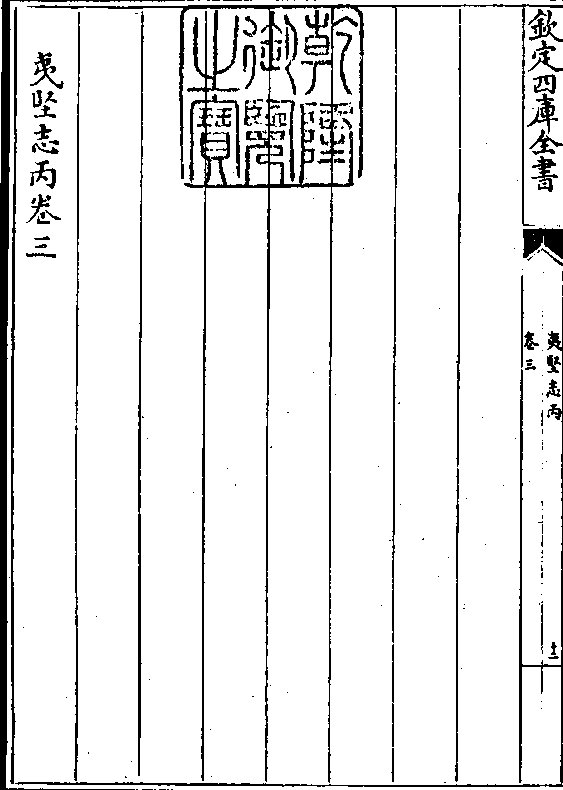 欽定四庫全書
夷堅志丙
卷三
十二
乾隆
御覽
之寶
夷堅志丙卷三